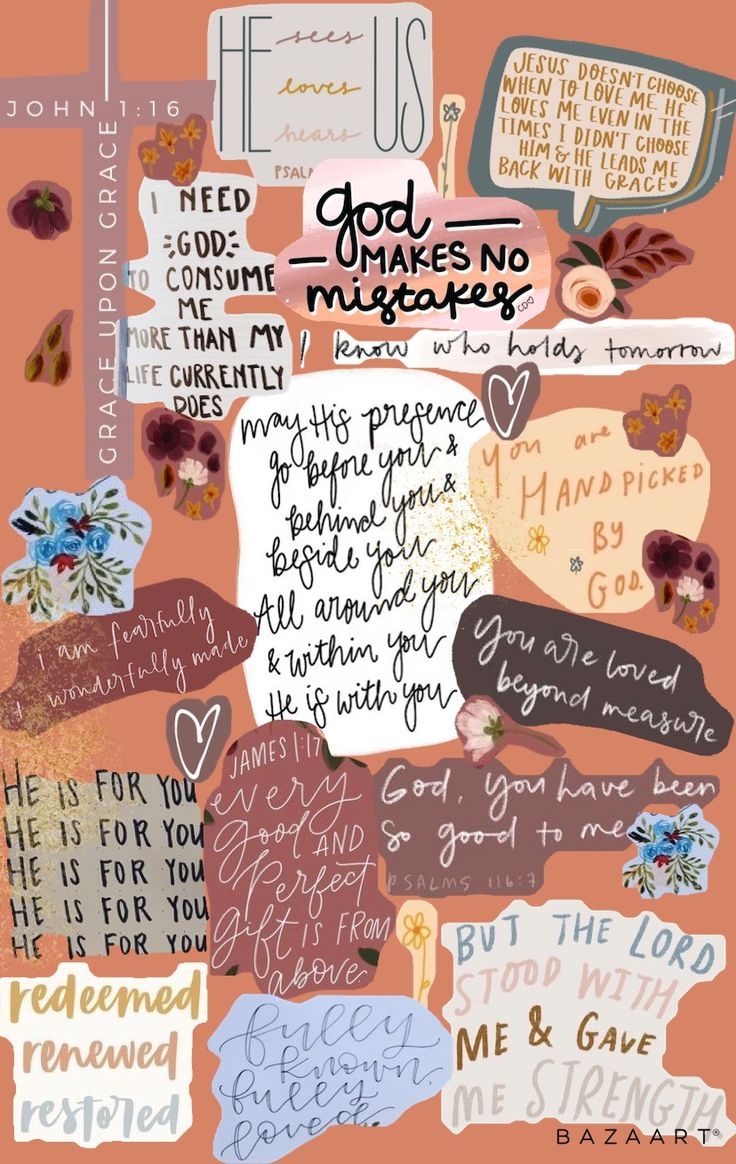 JOHN 1:16
GRACE UPON GRACE
HE sees US
loves
hears
PSAL
JESUS DOESN'T CHOOSE
WHEN TO LOVE ME. HE
LOVES ME EVEN IN THE
TIMES I DIDN'T CHOOSE
HIM & HE LEADS ME
BACK WITH GRACE
I NEED
GOD
TO CONSUME
ME
MORE THAN MY
LIFE CURRENTLY
DOES
god
MAKES NO
mistakes
I know who holds tomorrow
may His presence
go before you &
behind you &
beside you
All around you
& within you
He is with you
you are
HANDPICKED
BY
GOD.
i am fearfully
& wonderfully made
you are loved
beyond measure
HE IS FOR YOU
HE IS FOR YOU
HE IS FOR YOU
HE IS FOR YOU
HE IS FOR YOU
JAMES 1:17
every
Good AND
Perfect
Gift IS FROM
above.
God, you have been
so good to me
PSALMS 116:7
redeemed
renewed
restored
fully
known,
fully
loved.
BUT THE LORD
STOOD WITH
ME & GAVE
ME STRENGTH
BAZAART®